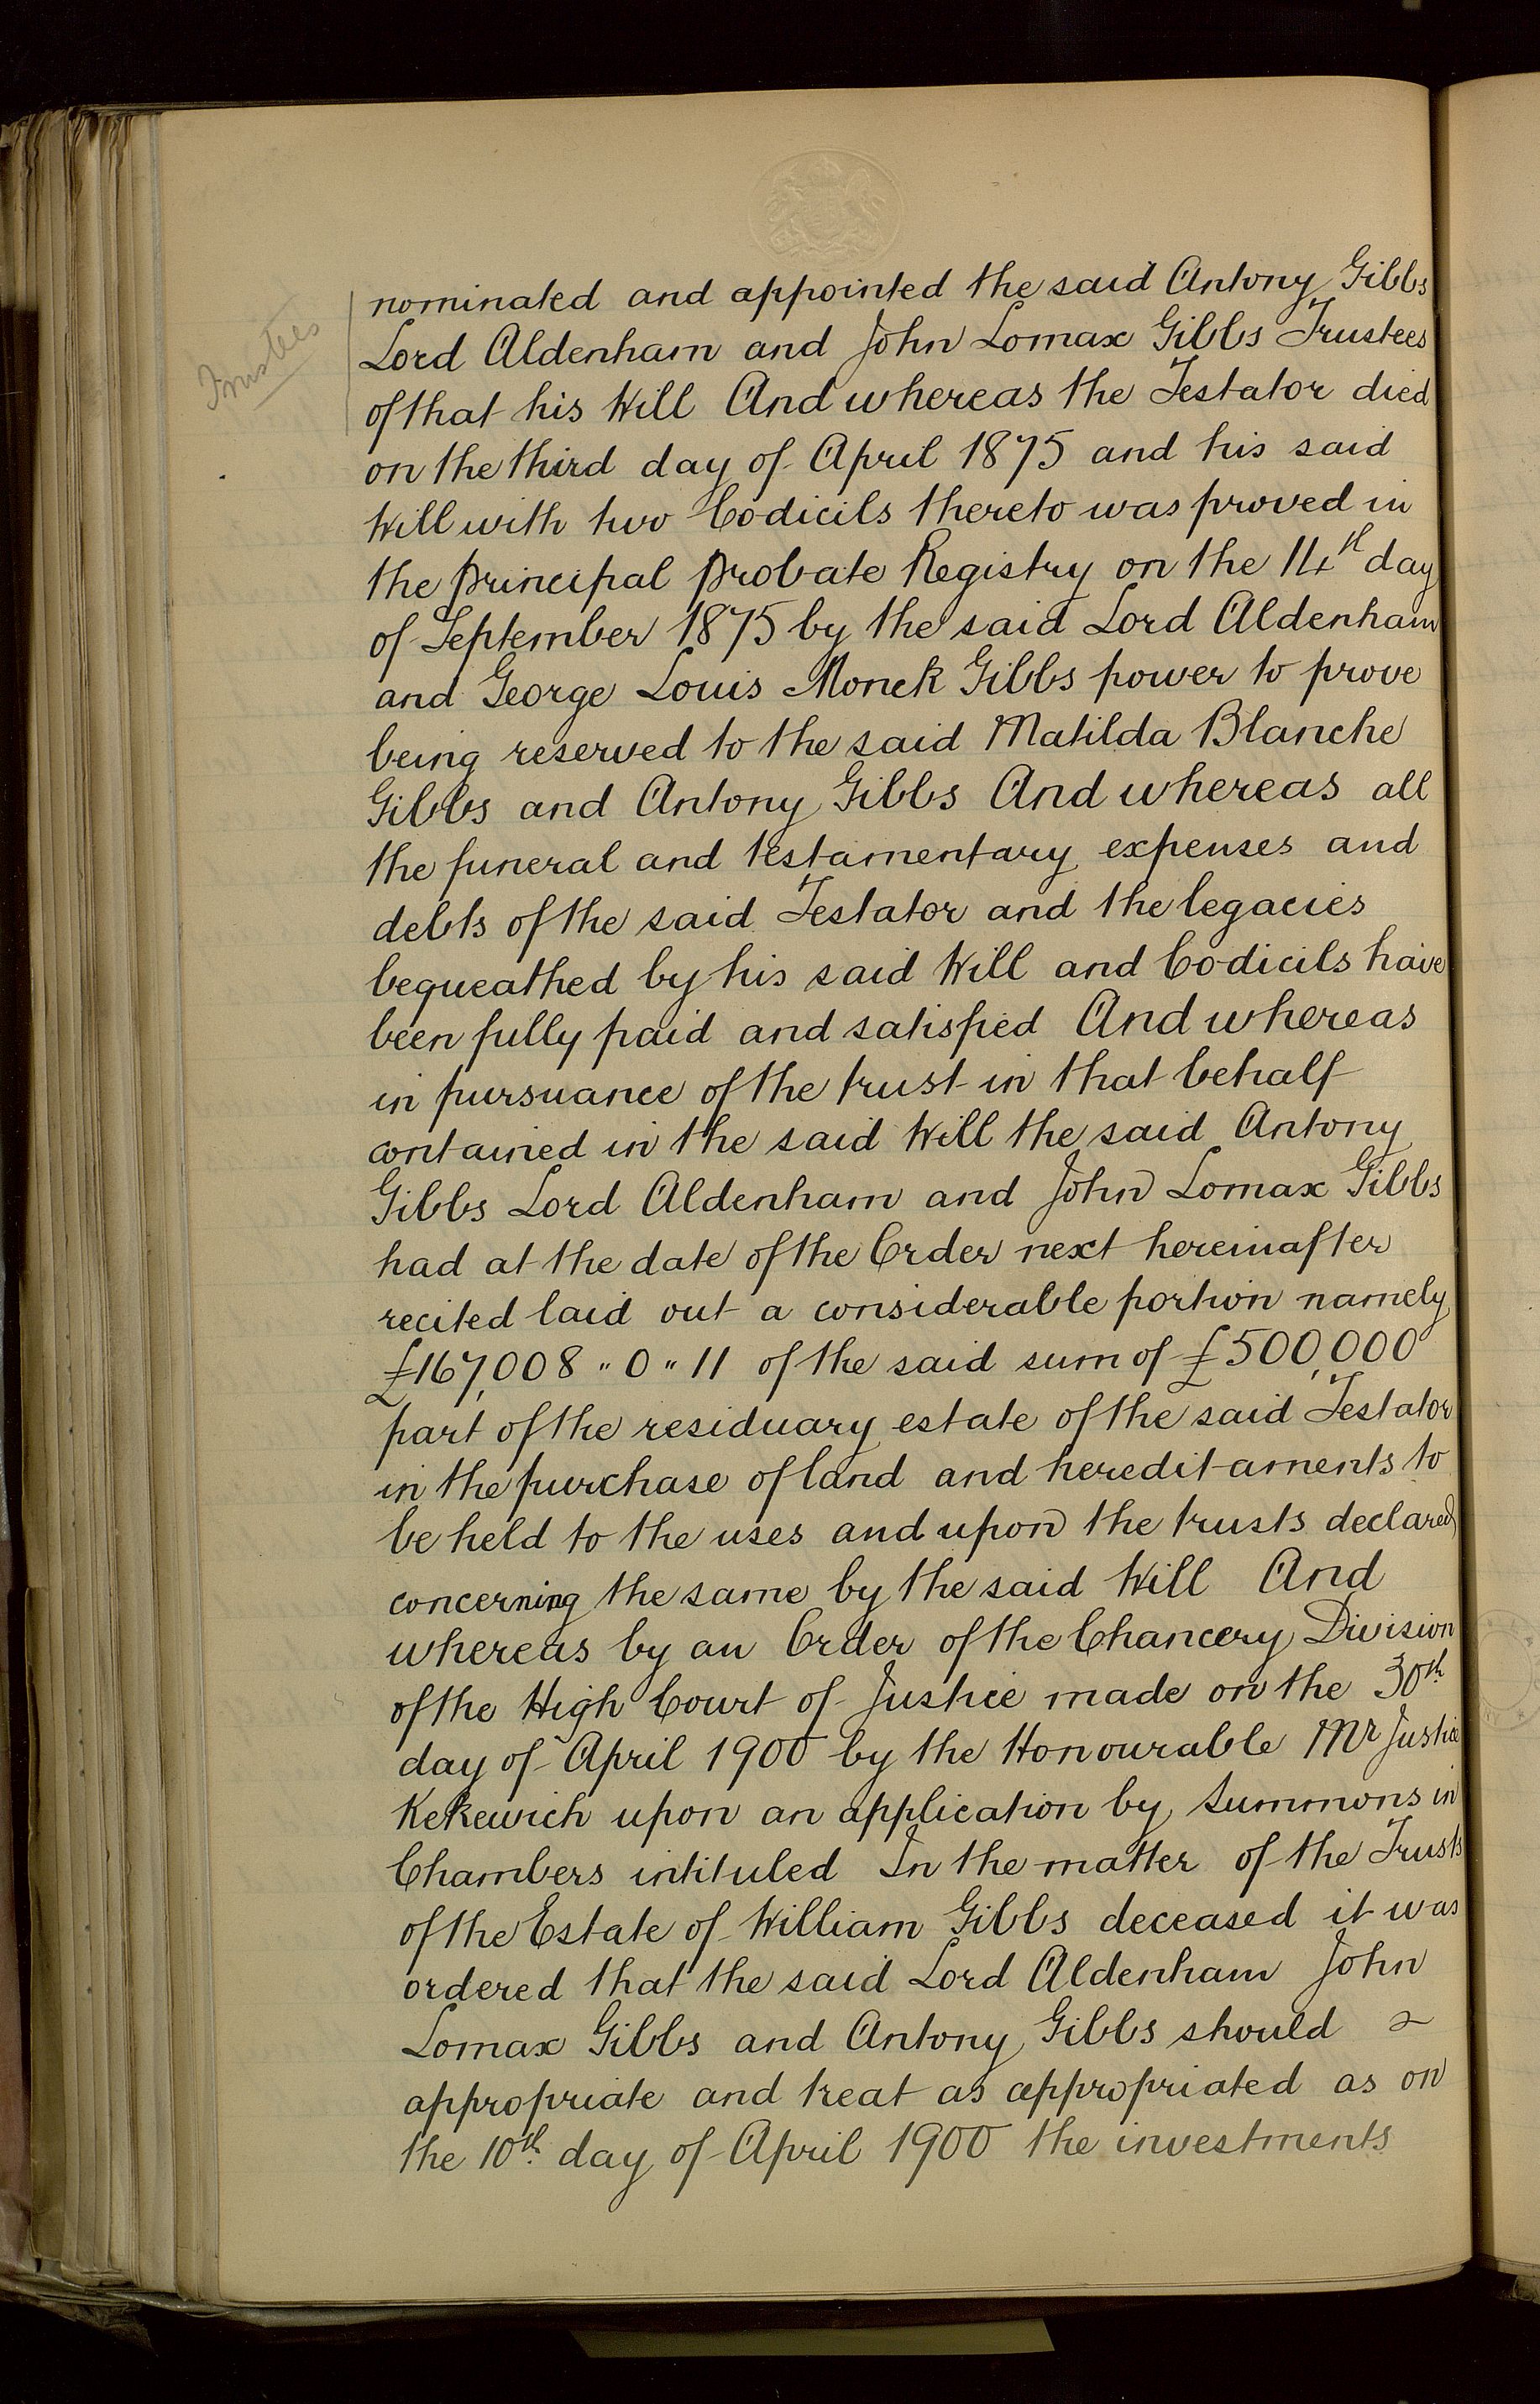 Trustees
nominated and appointed the said Antony Gibbs
Lord Aldenham and John Lomax Gibbs Trustees
of that his Will And whereas the Testator died
on the third day of April 1875 and his said
Will with two Codicils thereto was proved in
the Principal Probate Registry on the 14th day
of September 1875 by the said Lord Aldenham
and George Louis Monck Gibbs power to prove
being reserved to the said Matilda Blanche
Gibbs and Antony Gibbs And whereas all
the funeral and testamentary expenses and
debts of the said Testator and the legacies
bequeathed by his said Will and Codicils have
been fully paid and satisfied And whereas
in pursuance of the trust in that behalf
contained in the said Will the said Antony
Gibbs Lord Aldenham and John Lomax Gibbs
had at the date of the Order next hereinafter
recited laid out a considerable portion namely
£167,008 " 0 " 11 of the said sum of £500,000
part of the residuary estate of the said Testator
in the purchase of land and hereditaments to
be held to the uses and upon the trusts declared
concerning the same by the said Will And
whereas by an Order of the Chancery Division
of the High Court of Justice made on the 30th
day of April 1900 by the Honourable Mr Justice
Kekewich upon an application by Summons in
Chambers intituled In the matter of the Trusts
of the Estate of William Gibbs deceased it was
ordered that the said Lord Aldenham John
Lomax Gibbs and Antony Gibbs should ~
appropriate and treat as appropriated as on
the 10th day of April 1900 the investments